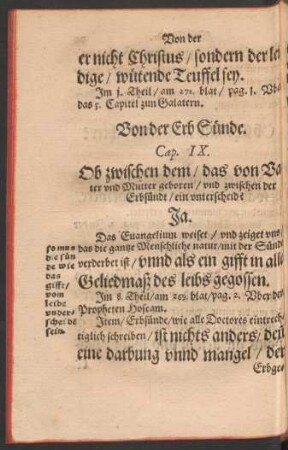 Von der
er nicht Christus / sondern der lei
dige / wütende Teuffel sey.
Im j. Theil / am 271. blat / pag. 1. Vbe
das 5. Capitel zun Galatern.
Von der Erb Sünde.
Cap. IX.
Ob zwischen dem / das von Va
ter vnd Mutter geboren / vnd zwischen der
Erbsünde / ein vnterscheid?
Ja.
Das Euangelium weiset / vnd zeiget vns /
das die gantze Menschliche natur / mit der Sünde
verderbet ist / vnnd als ein gifft in alle
Geliedmaß des leibs gegossen.
Im 8. Theil / am 369. blat / pag. 2. Vber den
Propheten Hoseam.
Item / Erbsünde / wie alle Doctores eintrech
tiglich schreiben / ist nichts anders / deñ
eine darbung vnnd mangel / der
Erbge-
so muß
die sün
de wie
das
gifft /
vom
leibe
vnder-
scheide
sein.